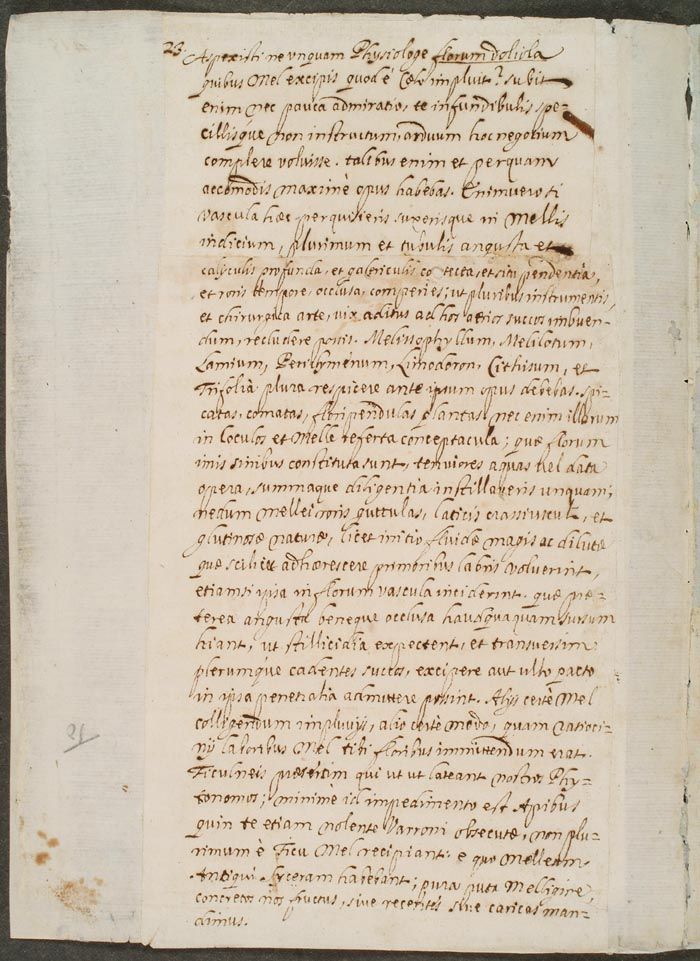 23. Aspexisti ne unquam Physiologe florum dolióla
quibus Mel excipis quod è Cœlo impluit? subit
enim nec pauca admiratio, te infundibulis spe-
cillisque non instructum, arduum hoc negotium
complere voluisse. talibus enim et perquam
accomodis maximè opus habebas. Enimuero si
vascula hæc perquisieris suxerisque in Mellis
indicium, plurimum et tubulis angusta et
calyculis profunda, et galericulis cotecta, et
et roris tempore, occlusa, comperies; ut pluribus instrumentis,
et chirurgica arte, vix aditus ad hos succos imbuen-
dum, recludere possis. Melissophyllum, Melilotum,
Lamium, Periclymenum, Limodoron, Cithisum, et
Trifolia plura respicere ante ipsum opus debebas. spi-
catas, comatas, floripendulas plantas, nec enim illarum
in loculos et Melle referta conceptacula; quæ florum
imis sinibus constituta sunt, tenuiores aquas vel data
opera, summaque diligentia instillaveris unquam;
nedum mellei roris guttulas, laticis crassiuscul, et
glutinosæ naturæ, licet initio fluidæ magis ac dilutæ
quæ scilicet adhærescere primoribus labris voluerint,
etiamsi ipsa in florum vascula inciderint. quæ præ-
terea angusta beneque occlusa haudquaquam sursum
hiant, ut stillicidia expectent, et transuersim
plerumque cadentes succos, excipere aut ullo pacto
in ipsa penetralia admittere possint. Alijs certè Mel
colligendum impluvijs, alio certè modo, quam ratioci-
nij laboribus Mel tibi floribus immittendum erat.
Ficulneis præsertim qui ut ut lateant nostros Phy-
tonomos; minimè id impedimento est Apibus
quin te etiam nolente Varroni obsecutæ, non plu-
rimum è Ficu Mel recipiant. e quo Melleam
Antiqui Syceram habebant; pura puta Melligine,
concretos nos fructus, siue recentes siue caricas man-
dimus.
21